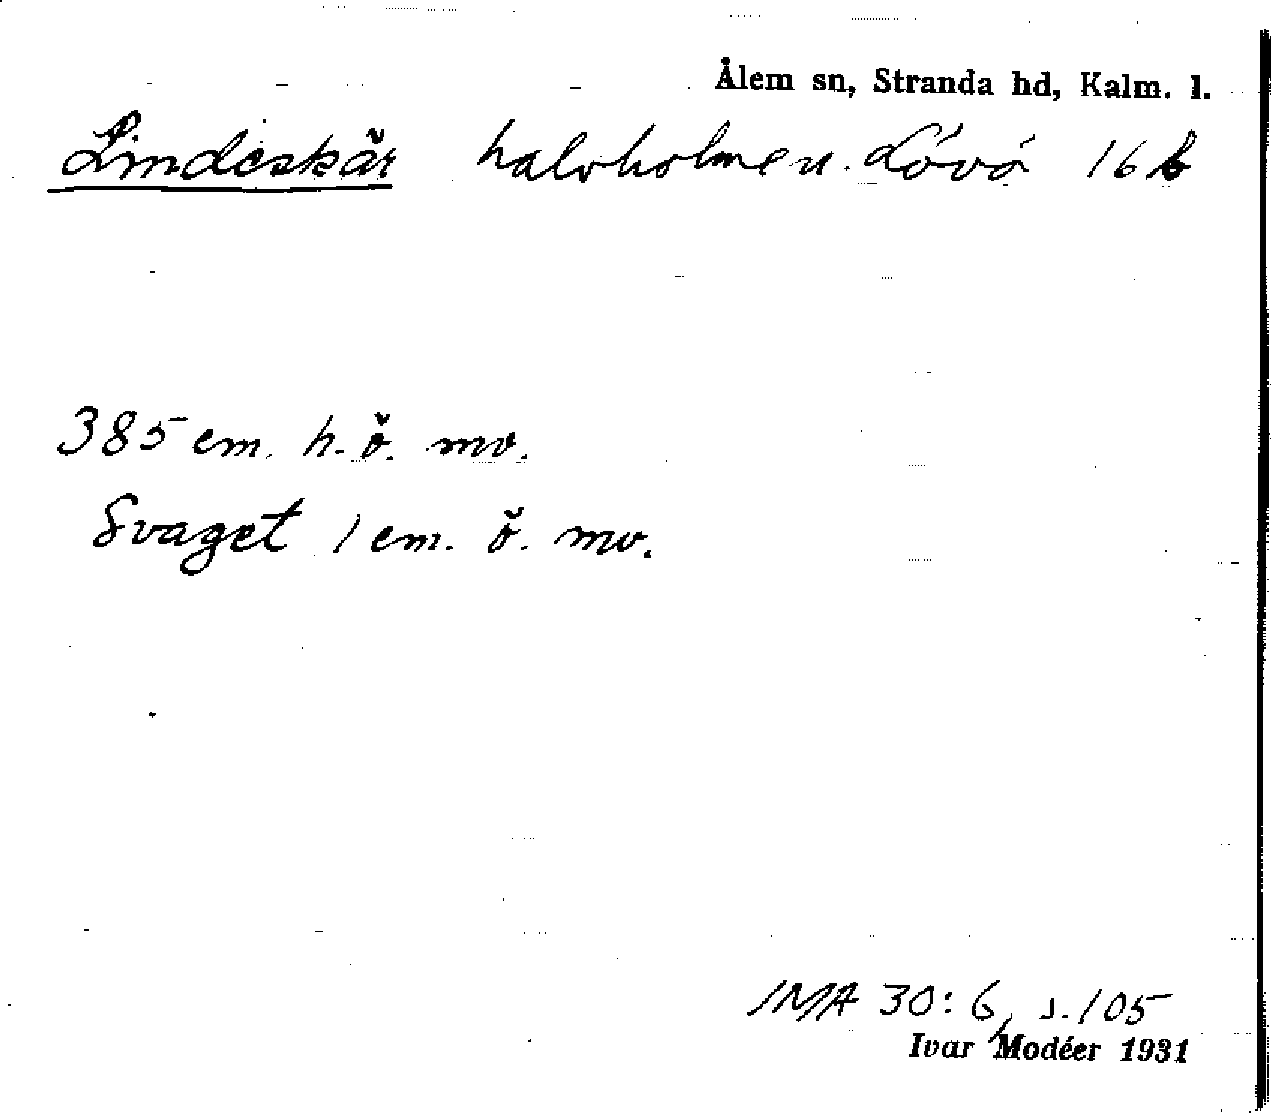 Ålem sn, Stranda hd, Kalm. l.
Lindeskär halvholme n. Lövö 16 b
385 em. h. ö. mv.
Svaget 1 em. ö. mv.
IMA 30:6, s. 105
Ivar Modéer 1931